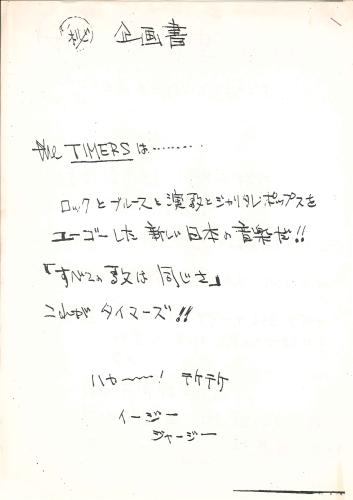 ㊙ 企画書
the TIMERS は………
ロックとブルースと演歌とジャリタレポップスを
ユーゴーした新しい日本の音楽だ!!
「すべての歌は同じさ」
これがタイマーズ!!
ハカ〜〜! テケテケ
イージー
ジャージー